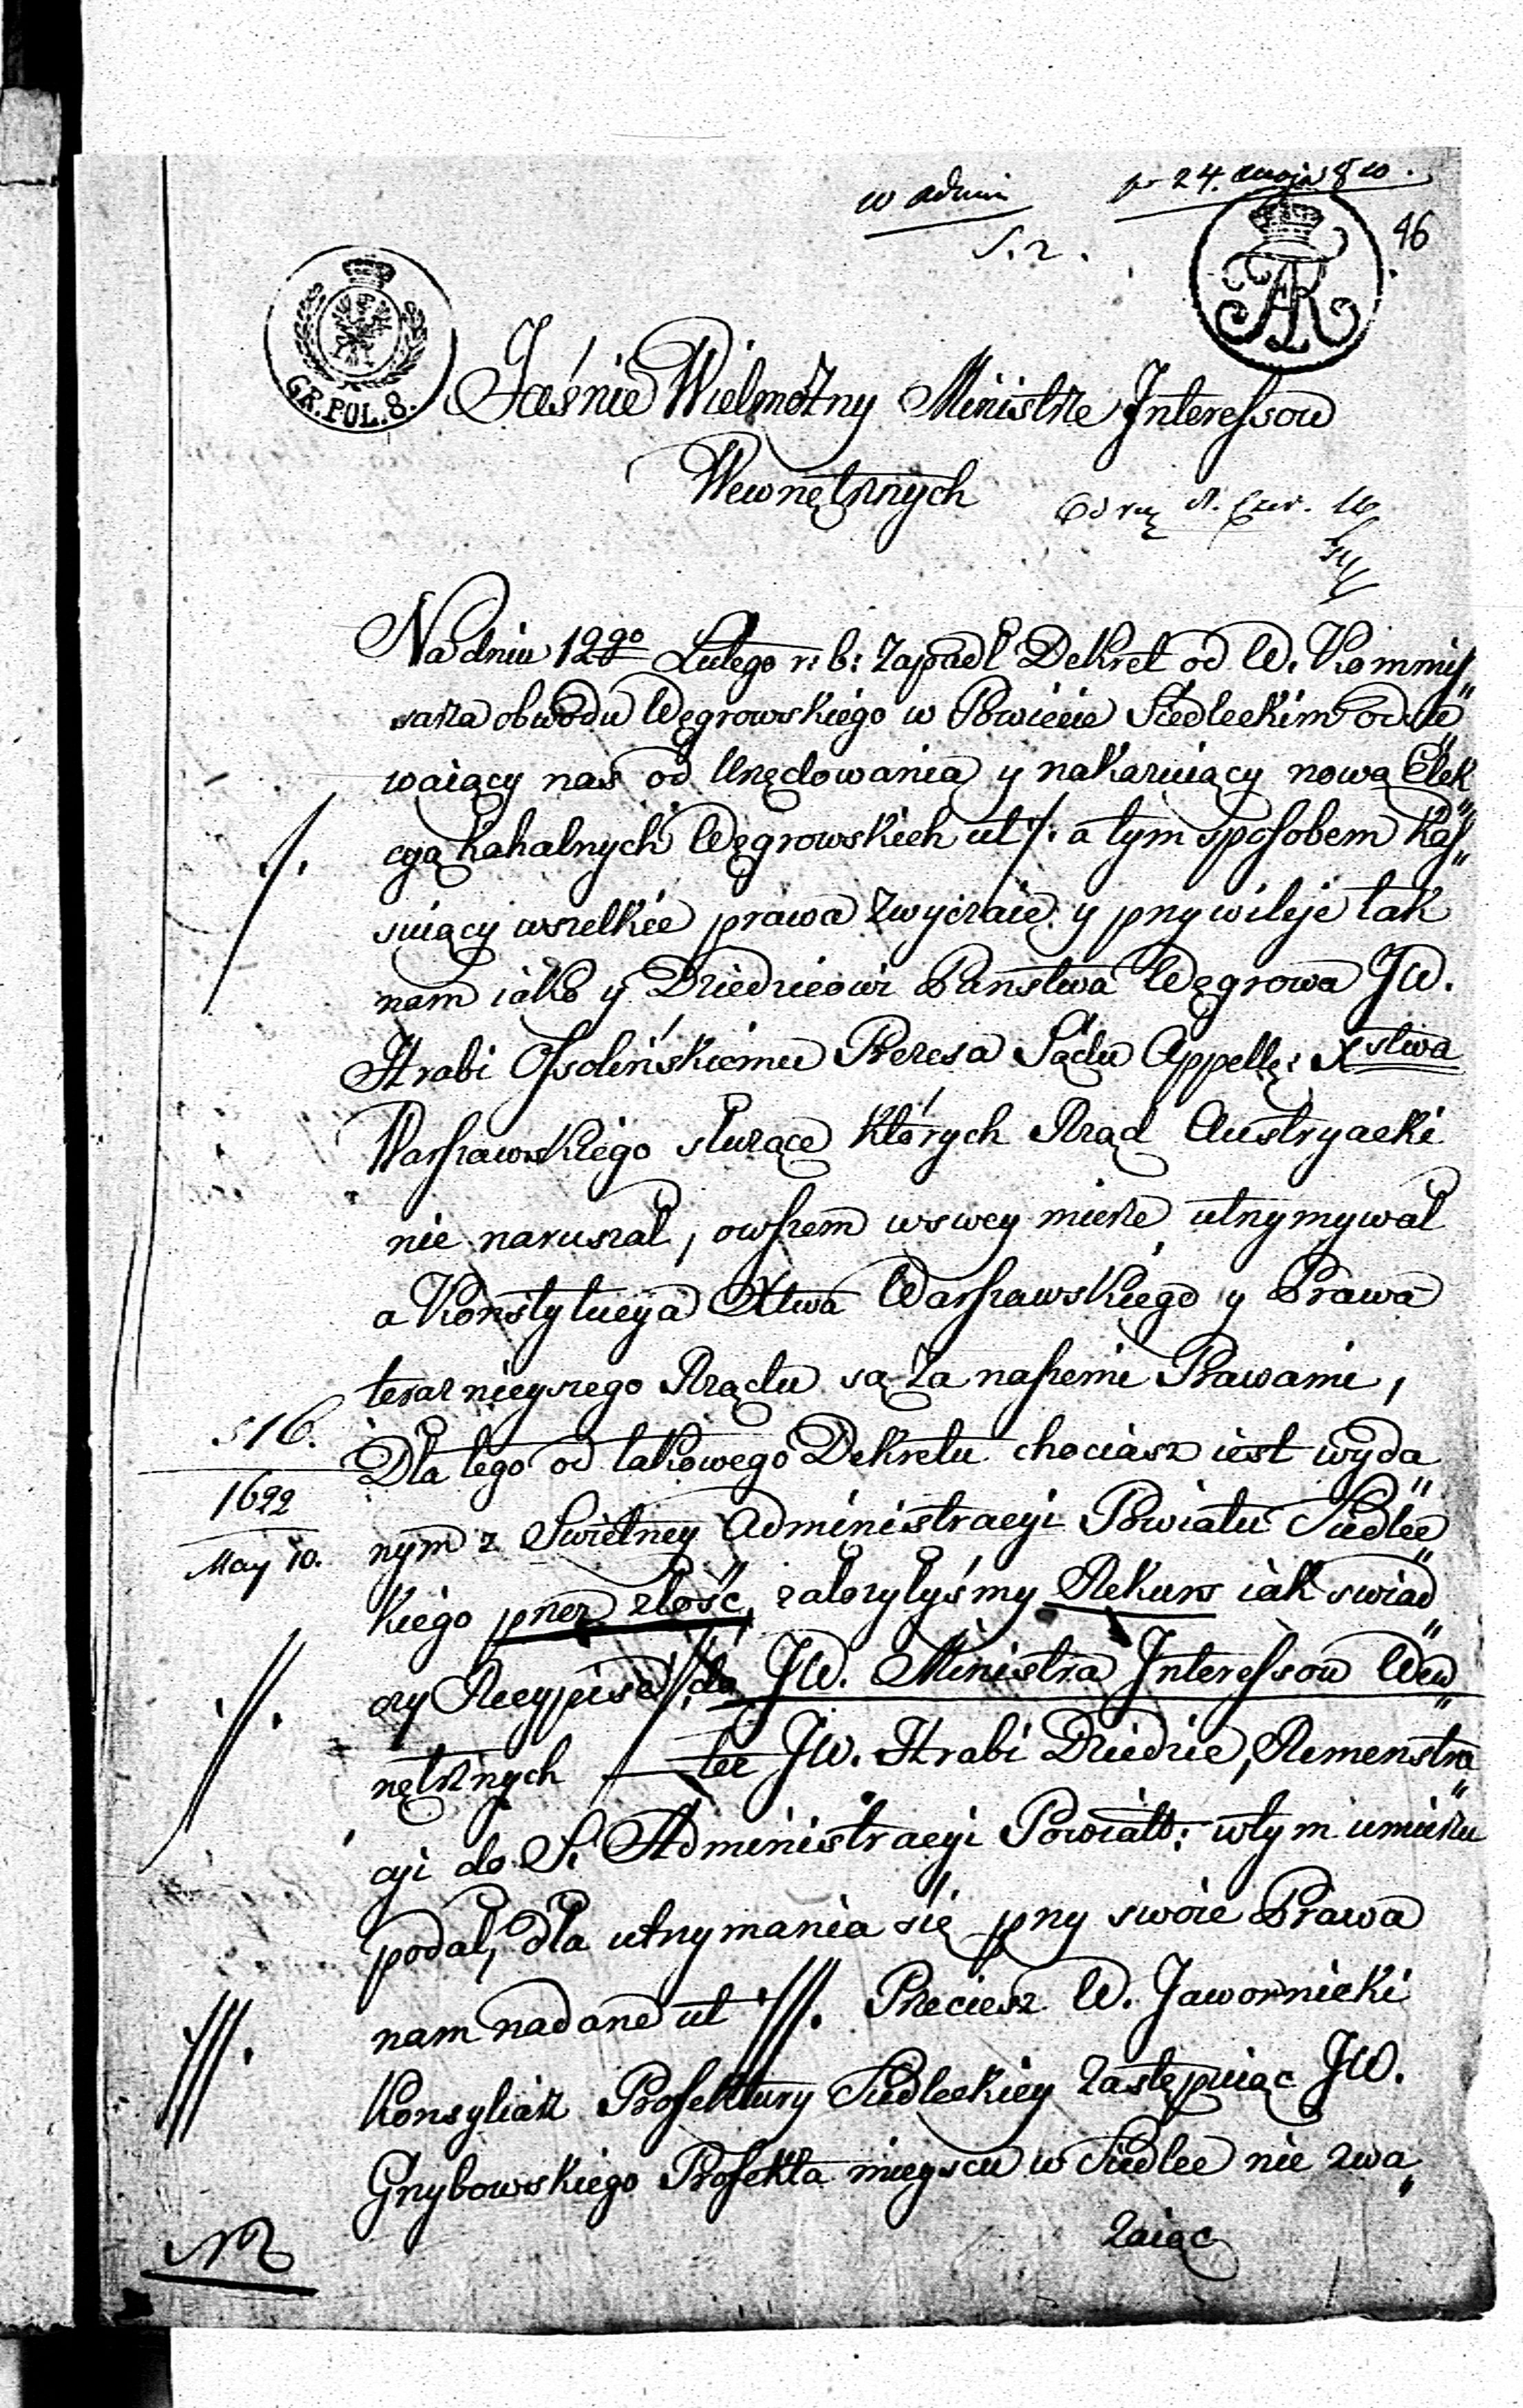 w Admin
pr 24. maja 810.
S. 2.
46
GR. POL. 8.
AR
Jaśnie Wielmożny Ministrze Interessow
Wewnętrznych
Na dniu 12go Lutego r: b: zapadł Dekret od W. Kommis„
sarza obwodu Węgrowskiego w Powiecie Siedleckim odde„
waiący nas od Urzędowania y nakazuiący nową Elek„
cyą Kahalnych Węgrowskich ut /. a tym sposobem Kas„
/.
suiący wszelkie prawa zwyczaie y przywileje tak
nam iako y Dziedzicowi Państwa Węgrowa JW.
Hrabi Ossolińskiemu Prezesa Sądu Appellą: Xstwa
Warszawskiego służące których Rząd Austryacki
nie naruszał, owszem w swey mierze utrzymywał
a Konstytucya Xtwa Warszawskiego y Prawa
teraznieyszego Rządu są za naszemi Prawami,
516.
Dla tego od takowego Dekretu chociasz iest wyda„
1622
May 10.
nym z Swietney Administracyi Powiatu Siedlec„
kiego przez złość, założyłyśmy Rekurs iak swiad„
czy Recypisse //. do JW. Ministra Interessow Wew„
//.
nętrznych tez JW. Hrabi Dziedzic, Remenstra„
cji do S. Administracyi Powiatt: w tym umierzu
podał, dla utrzymania się przy swoie Prawa
nam nadane ut ///. Przeciesz W. Jawornicki
///.
Konsyliarz Prefektury Siedleckiey zastępuiąc JW.
Grzybowskiego Prefekta mieyscu w Siedlce nie zwa„
żaiąc